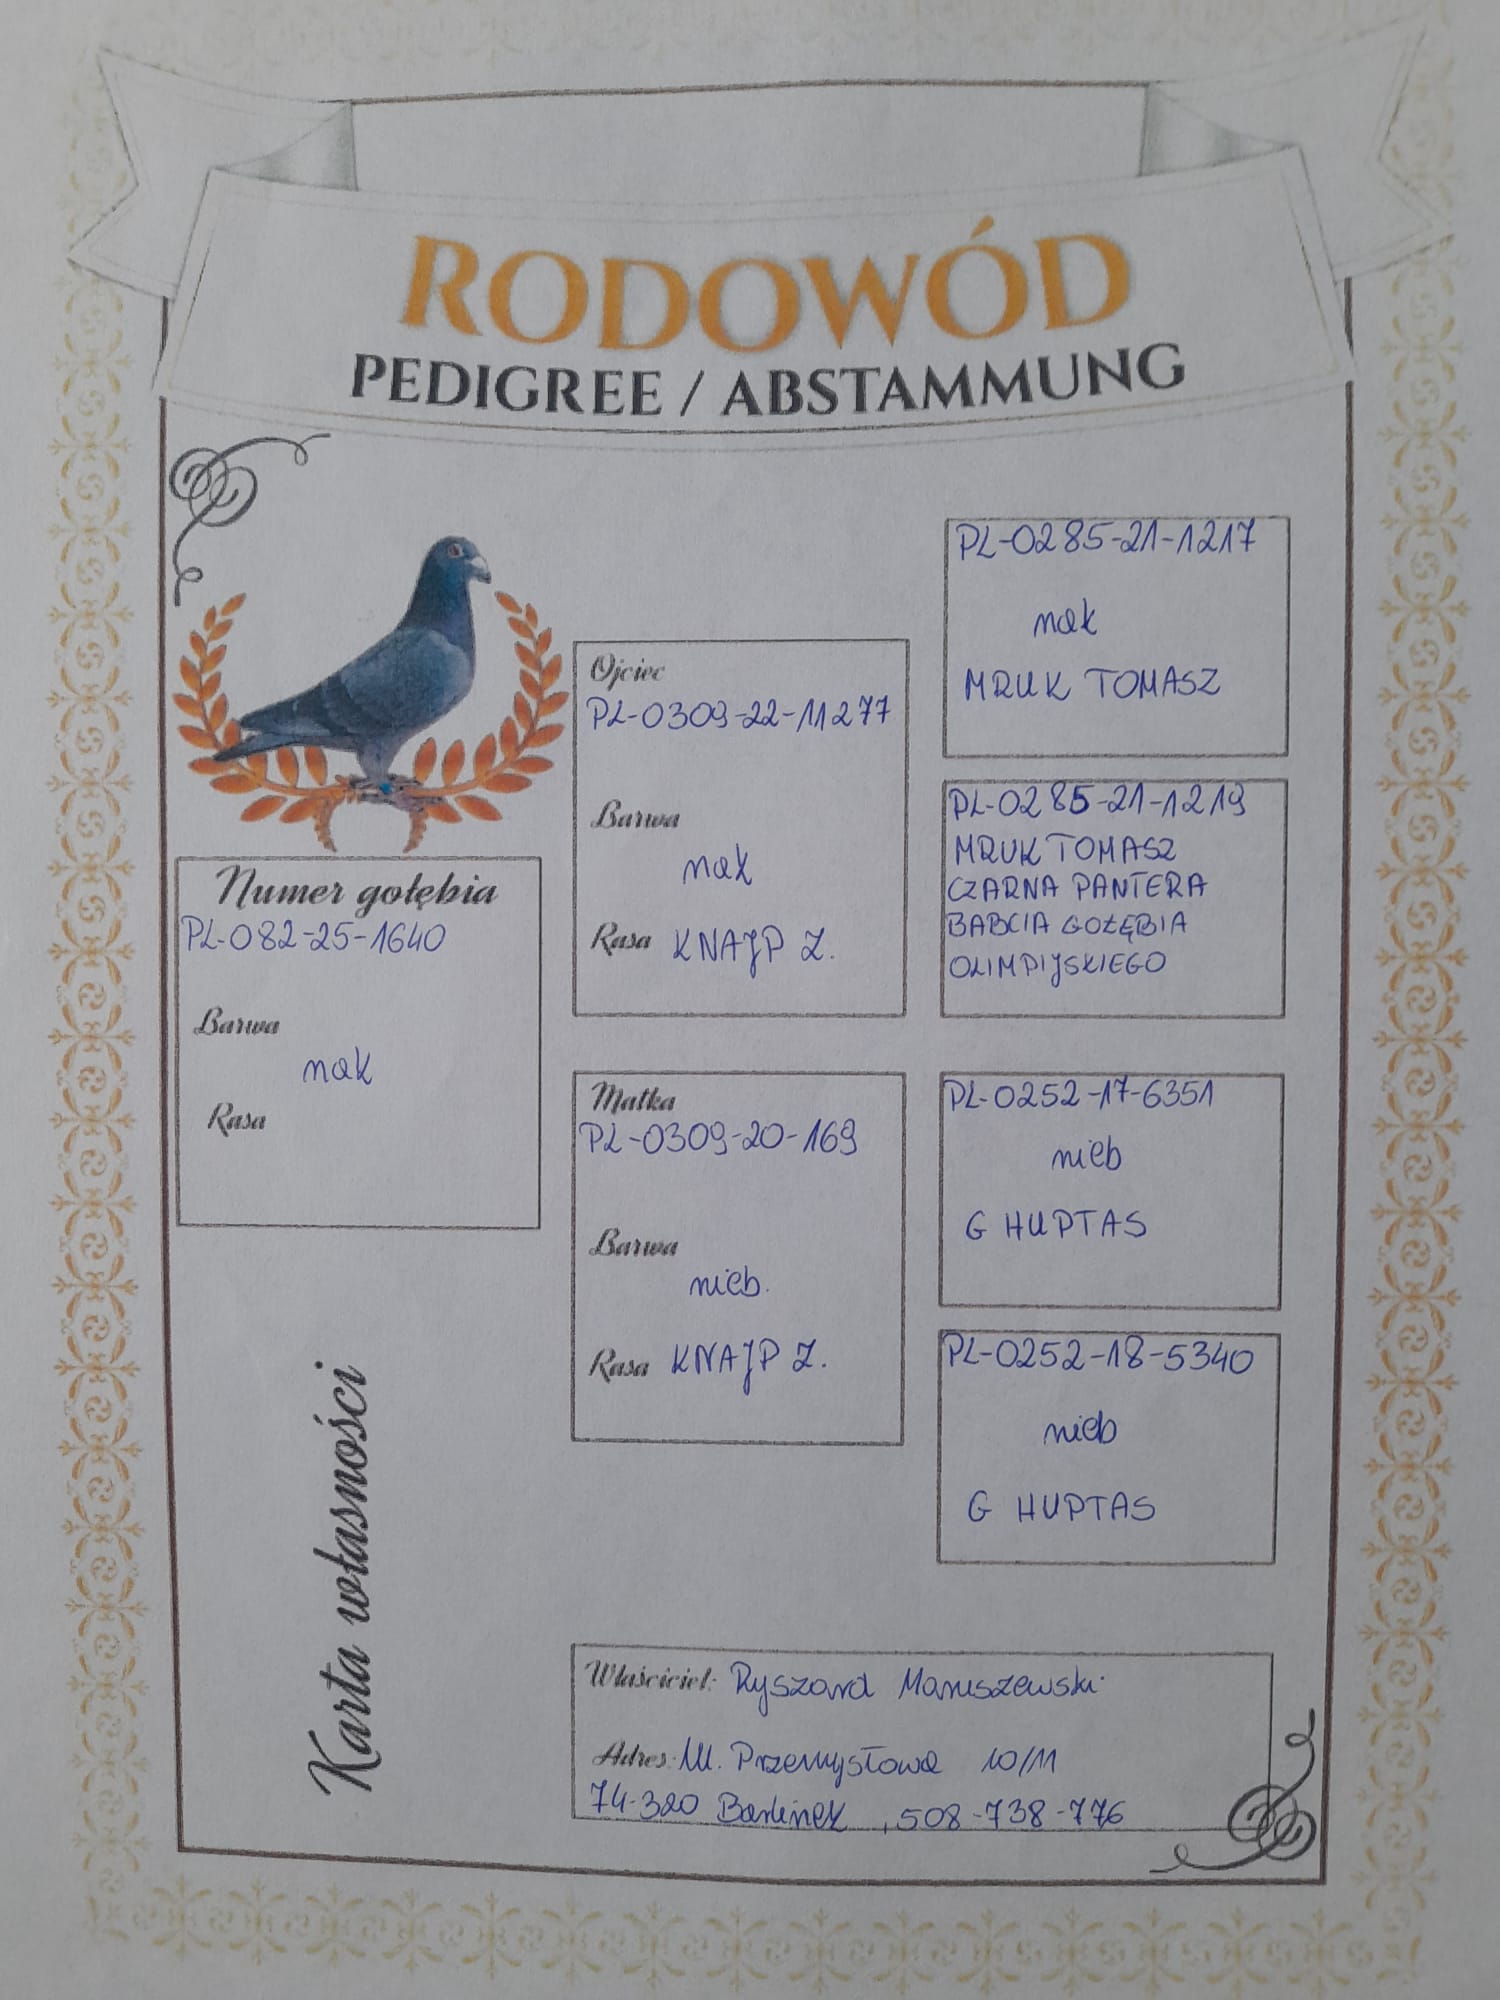 RODOWÓD
PEDIGREE / ABSTAMMUNG
Numer gołębia
PL-082-25-1640
Barwa
nak
Rasa
Ojciec
PL-0309-22-11277
Barwa
nak
Rasa KNAJP Z.
Matka
PL-0309-20-169
Barwa
nieb.
Rasa KNAJP Z.
PL-0285-21-1217
nak
MRUK TOMASZ
PL-0285-21-1219
MRUK TOMASZ
CZARNA PANTERA
BABCIA GOŁĘBIA
OLIMPIJSKIEGO
PL-0252-17-6351
nieb
G HUPTAS
PL-0252-18-5340
nieb
G HUPTAS
Karta własności
Właściciel: Ryszard Maruszewski
Adres: Ul. Przemysłowa 10/11
74-320 Barlinek, 508-738-776